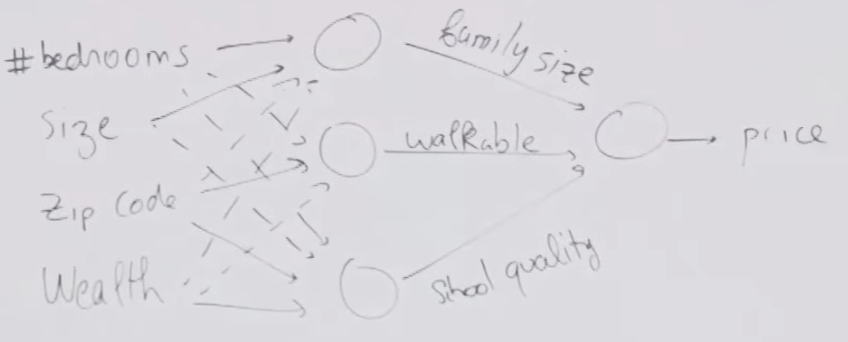 #bedrooms
Size
Zip Code
Wealth
family size
walkable
School quality
price